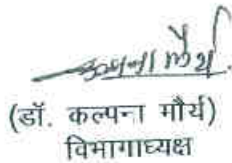 कल्पना मौर्य
(डॉ. कल्पना मौर्य)
विभागाध्यक्ष